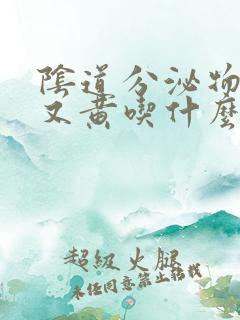 陰道分泌物
又黃喫什麼
超級火腿
未經同意禁止轉載